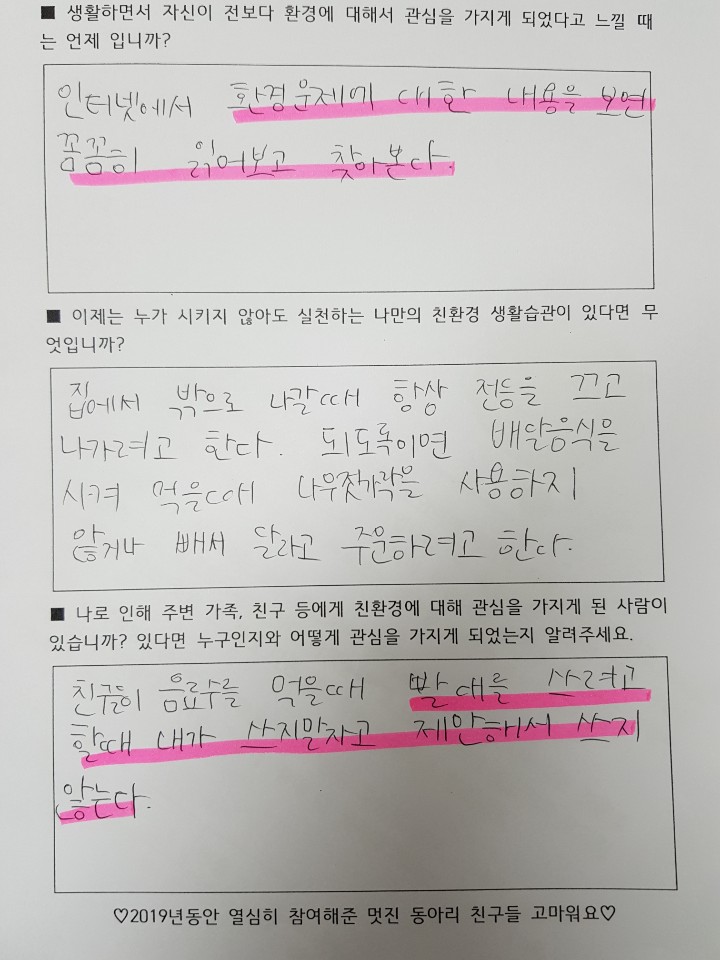 ■ 생활하면서 자신이 전보다 환경에 대해서 관심을 가지게 되었다고 느낄 때
는 언제 입니까?
인터넷에서 환경문제에 대한 내용을 보면
꼼꼼히 읽어보고 찾아본다.
■ 이제는 누가 시키지 않아도 실천하는 나만의 친환경 생활습관이 있다면 무
엇입니까?
집에서 밖으로 나갈때 항상 전등을 끄고
나가려고 한다. 되도록이면 배달음식을
시켜 먹을때 나무젓가락을 사용하지
않거나 빼서 달라고 주문하려고 한다.
■ 나로 인해 주변 가족, 친구 등에게 친환경에 대해 관심을 가지게 된 사람이
있습니까? 있다면 누구인지와 어떻게 관심을 가지게 되었는지 알려주세요.
친구들이 음료수를 먹을때 빨대를 쓰려고
할때 내가 쓰지말자고 제안해서 쓰지
않는다.
♡2019년동안 열심히 참여해준 멋진 동아리 친구들 고마워요♡